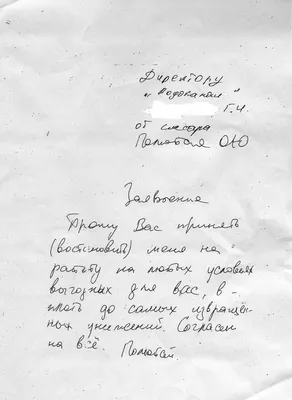 Директору
"Водоканал"
Г.И.
от слесаря
Заявление
Прошу Вас принять
(востоновить) меня на
работу на любых условиях
выгодных для вас, в-
плоть до самых извращён-
ных унижений. Согласен
на всё.